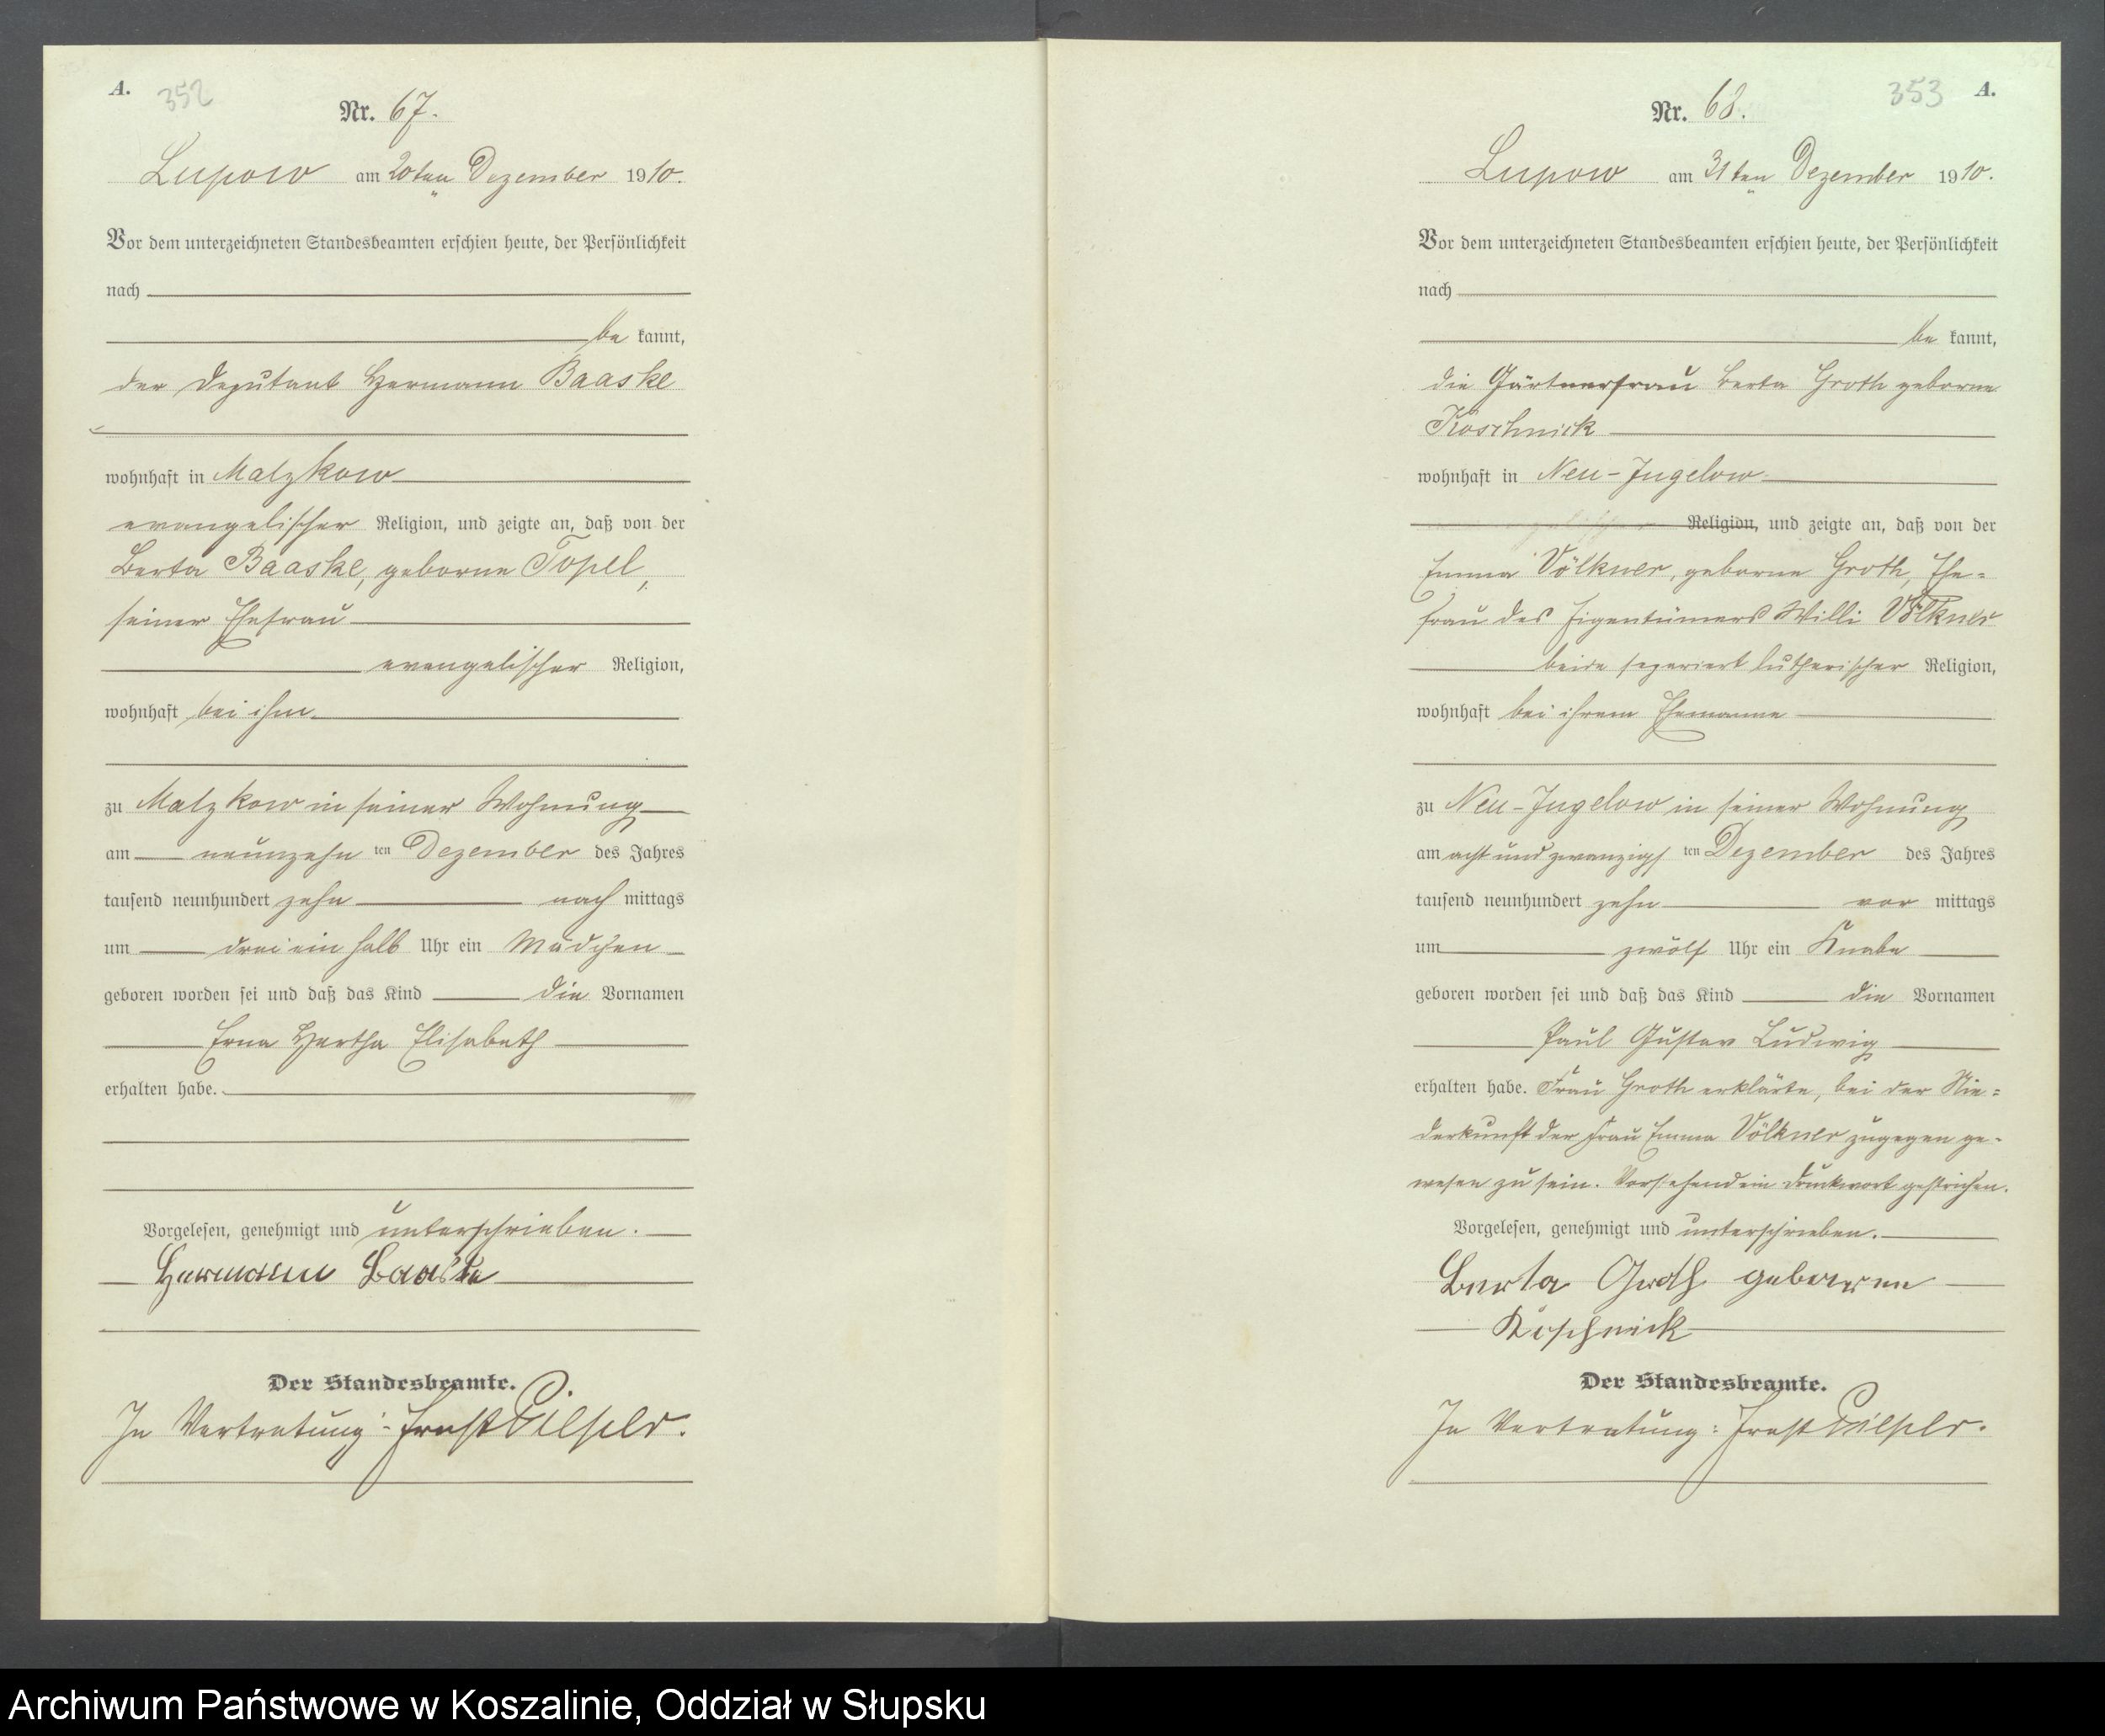 A.
352
Nr. 67.
Lupow am 20ten Dezember 1910.
Vor dem unterzeichneten Standesbeamten erschien heute, der Persönlichkeit
nach
be kannt,
der Deputant Hermann Baaske
wohnhaft in Malzkow
evangelischer Religion, und zeigte an, daß von der
Berta Baaske, geborne Topel,
seiner Ehefrau
evangelischer Religion,
wohnhaft bei ihm
zu Malzkow in seiner Wohnung
am neunzehn ten Dezember des Jahres
tausend neunhundert zehn nach mittags
um drei ein halb Uhr ein Mädchen
geboren worden sei und daß das Kind die Vornamen
Erna Hertha Elisabeth
erhalten habe.
Vorgelesen, genehmigt und unterschrieben.
Hermann Baaske
Der Standesbeamte.
In Vertretung: Ernst
353
A.
Nr. 68.
Lupow am 31ten Dezember 1910.
Vor dem unterzeichneten Standesbeamten erschien heute, der Persönlichkeit
nach
be kannt,
die Gärtnerfrau Berta Groth geborne
Koschnick
wohnhaft in Neu-Jugelow
Religion, und zeigte an, daß von der
Emma Völkner, geborne Groth, Ehe=
frau des Eigentümers Willi Völkner
beide separiert lutherischer Religion,
wohnhaft bei ihrem Ehemanne
zu Neu-Jugelow in seiner Wohnung
am acht und zwanzigs ten Dezember des Jahres
tausend neunhundert zehn vor mittags
um zwölf Uhr ein Knabe
geboren worden sei und daß das Kind die Vornamen
Paul Gustav Ludwig
erhalten habe. Frau Groth erklärte, bei der Nie=
derkunft der Frau Emma Völkner zugegen ge-
wesen zu sein. Vorstehend ein Druckwort gestrichen.
Vorgelesen, genehmigt und unterschrieben.
Berta Groth geborene
Koschnick
Der Standesbeamte.
In Vertretung: Ernst
Archiwum Państwowe w Koszalinie, Oddział w Słupsku